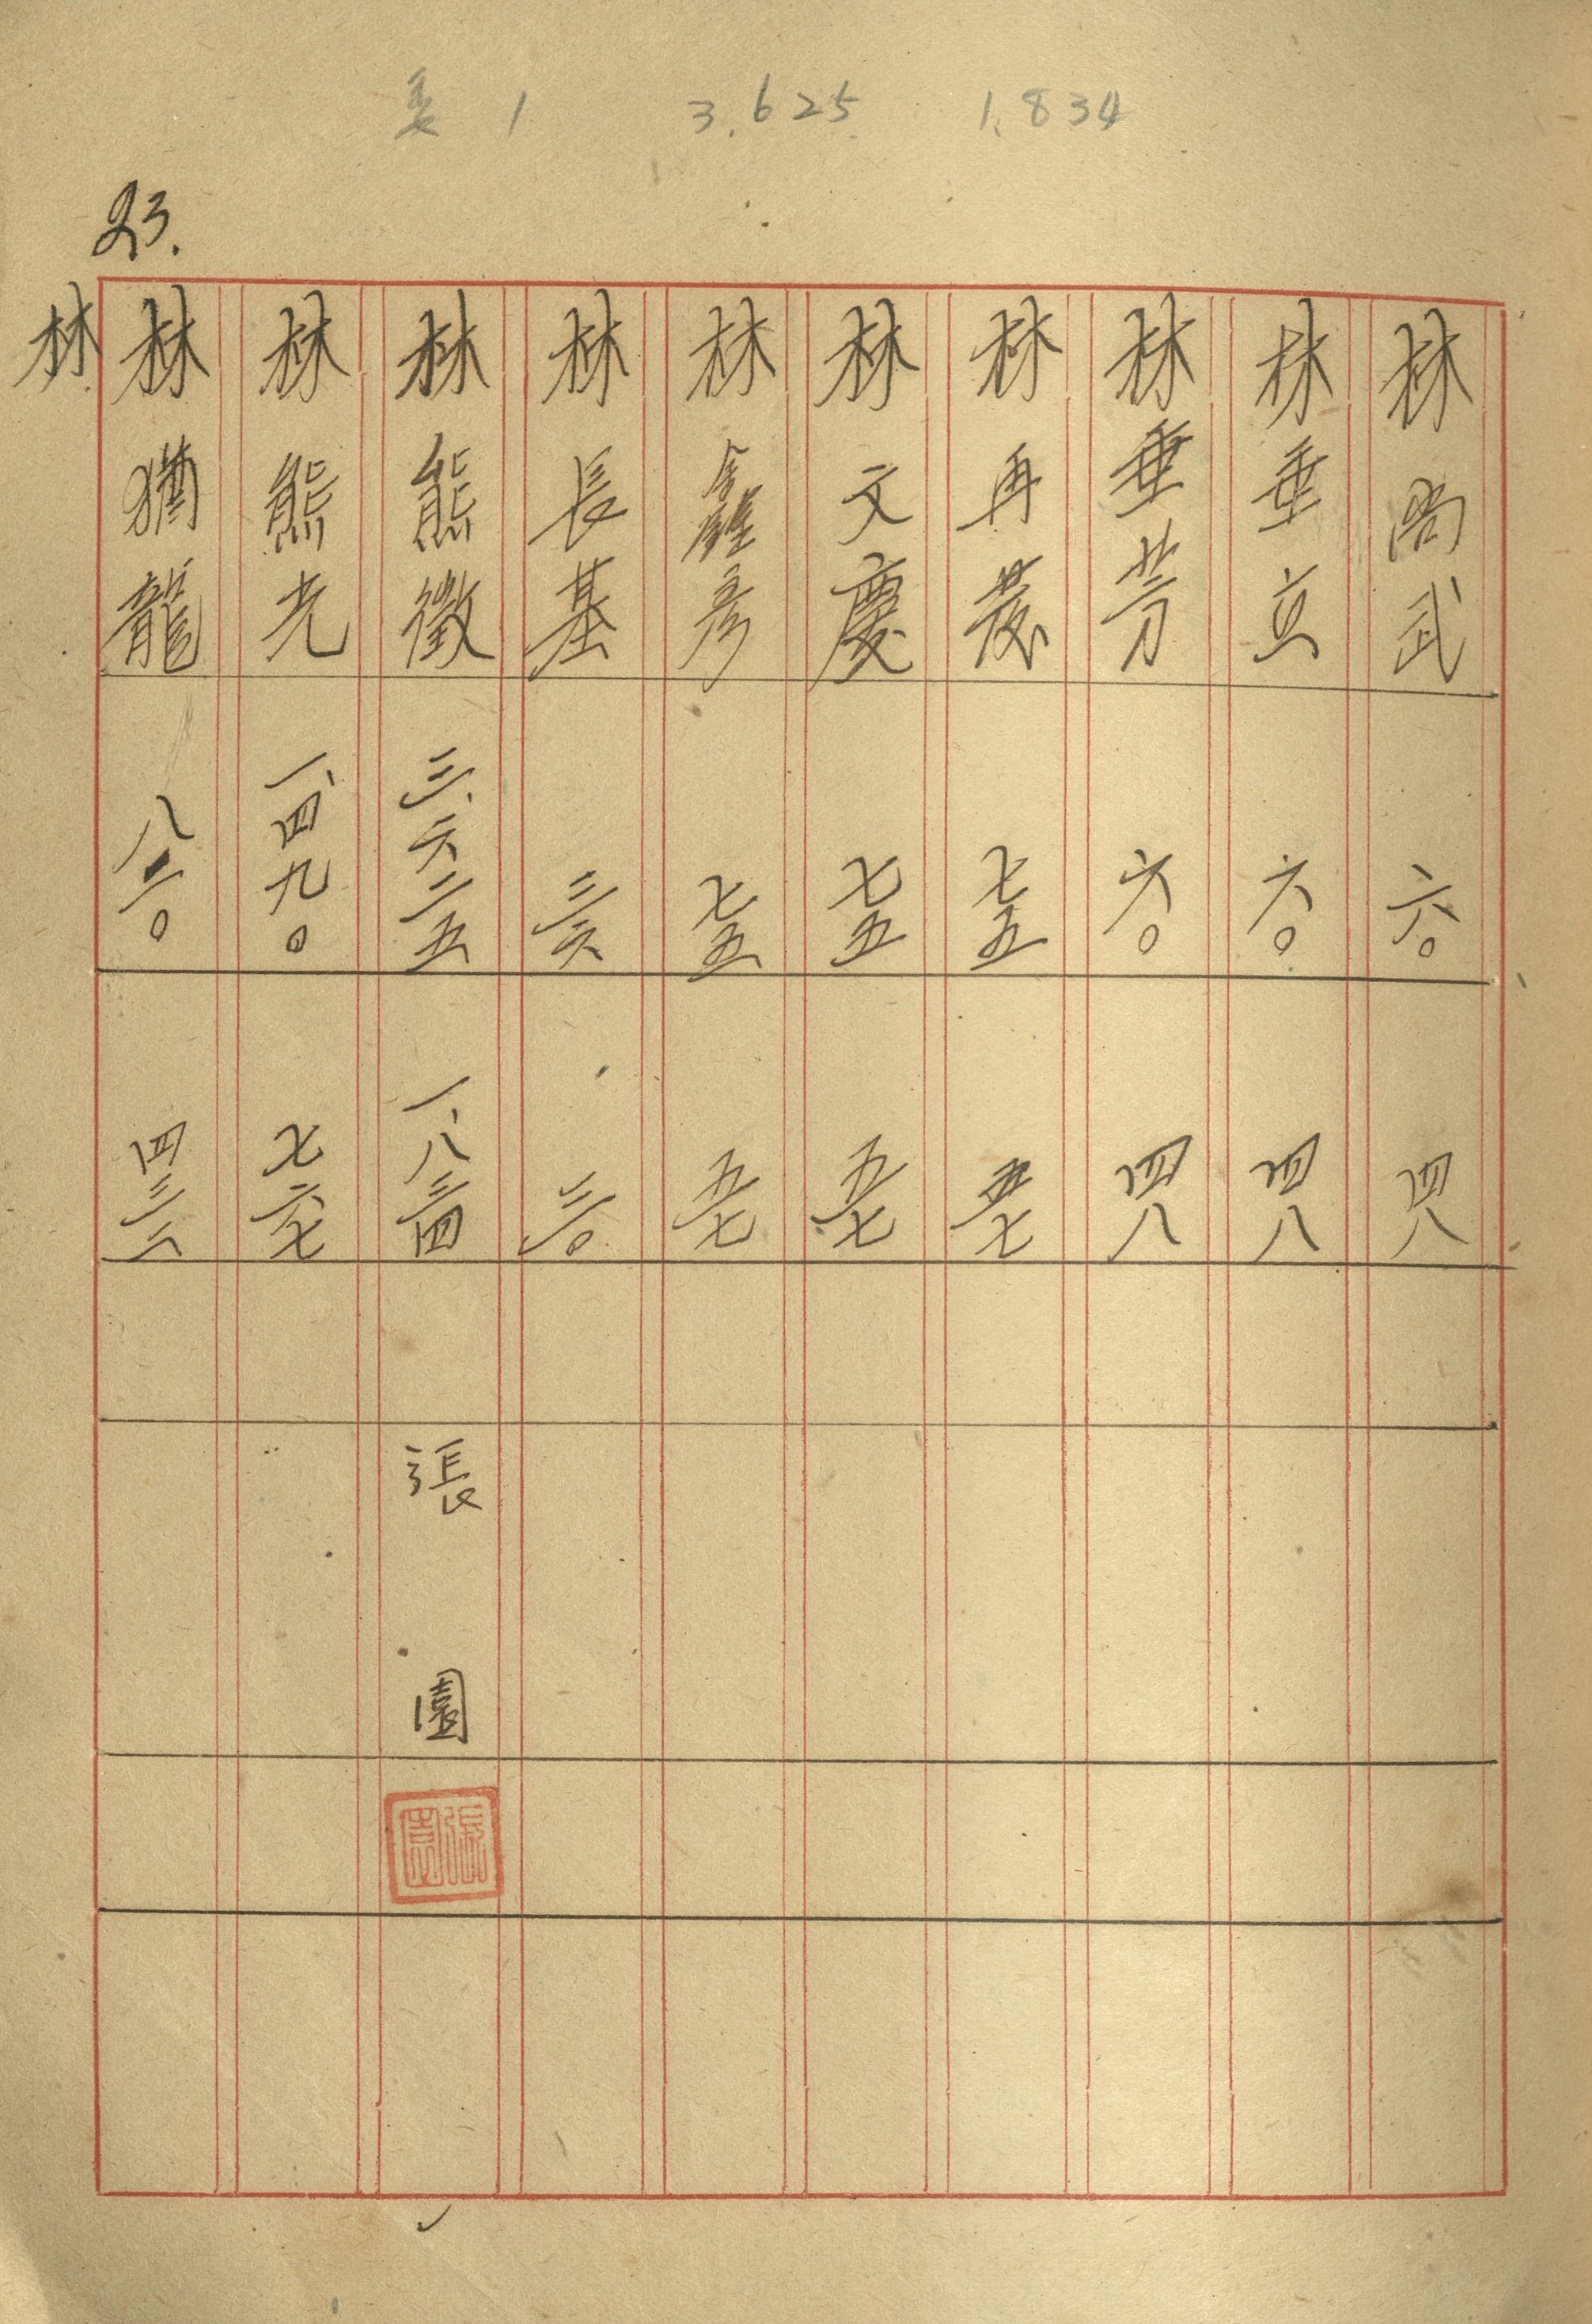 1 3.625 1.834
23.
林尚武 六〇 四八
林垂立 六〇 四八
林垂芳 六〇 四八
林再發 七五 五七
林文慶 七五 五七
林彥 七五 五七
林長基 三六 二〇
林熊徵 三、六二五 一、八三四 張園 張園
林熊光 一、四九〇 七六七
林猶龍 八二〇 四三二
林